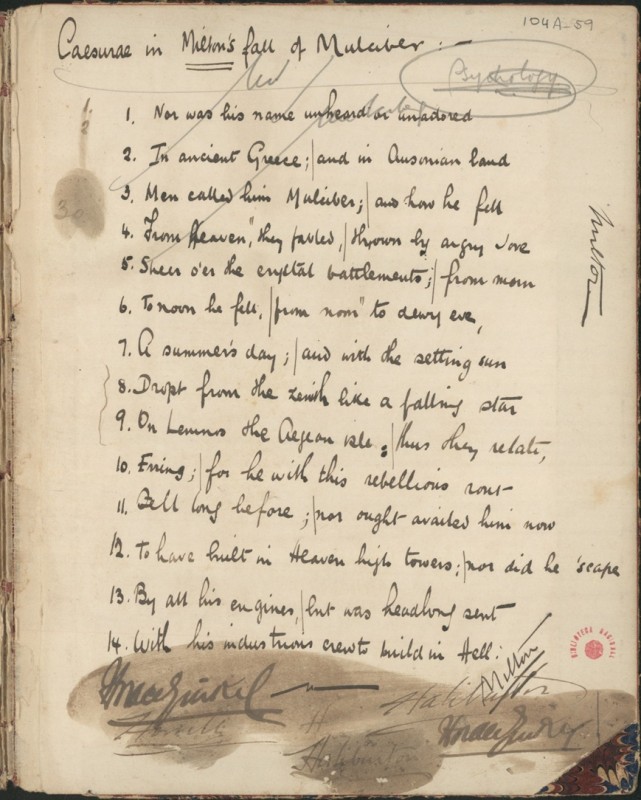 104A-59
Caesurae in Milton's fall of Mulciber :—
Psychology
1. Nor was his name unheard or unadored
2. In ancient Greece;|and in Ausonian land
3. Men called him Mulciber;|and how he fell
4. From Heaven, they fabled,|thrown by angry Jove
5. Sheer o'er the crystal battlements;|from morn
6. To noon he fell,|from noon to dewy eve,
7. A summer's day;|and with the setting sun
8. Dropt from the zenith like a falling star
9. On Lemnos the Aegean isle:|thus they relate,
10. Erring;|for he with this rebellious rout
11. Fell long before;|nor ought availed him now
12. To have built in Heaven high towers;|nor did he 'scape
13. By all his engines,|but was headlong sent
14. With his industrious crew to build in Hell:
Milton
Milton
Haliburton
BIBLIOTECA NACIONAL